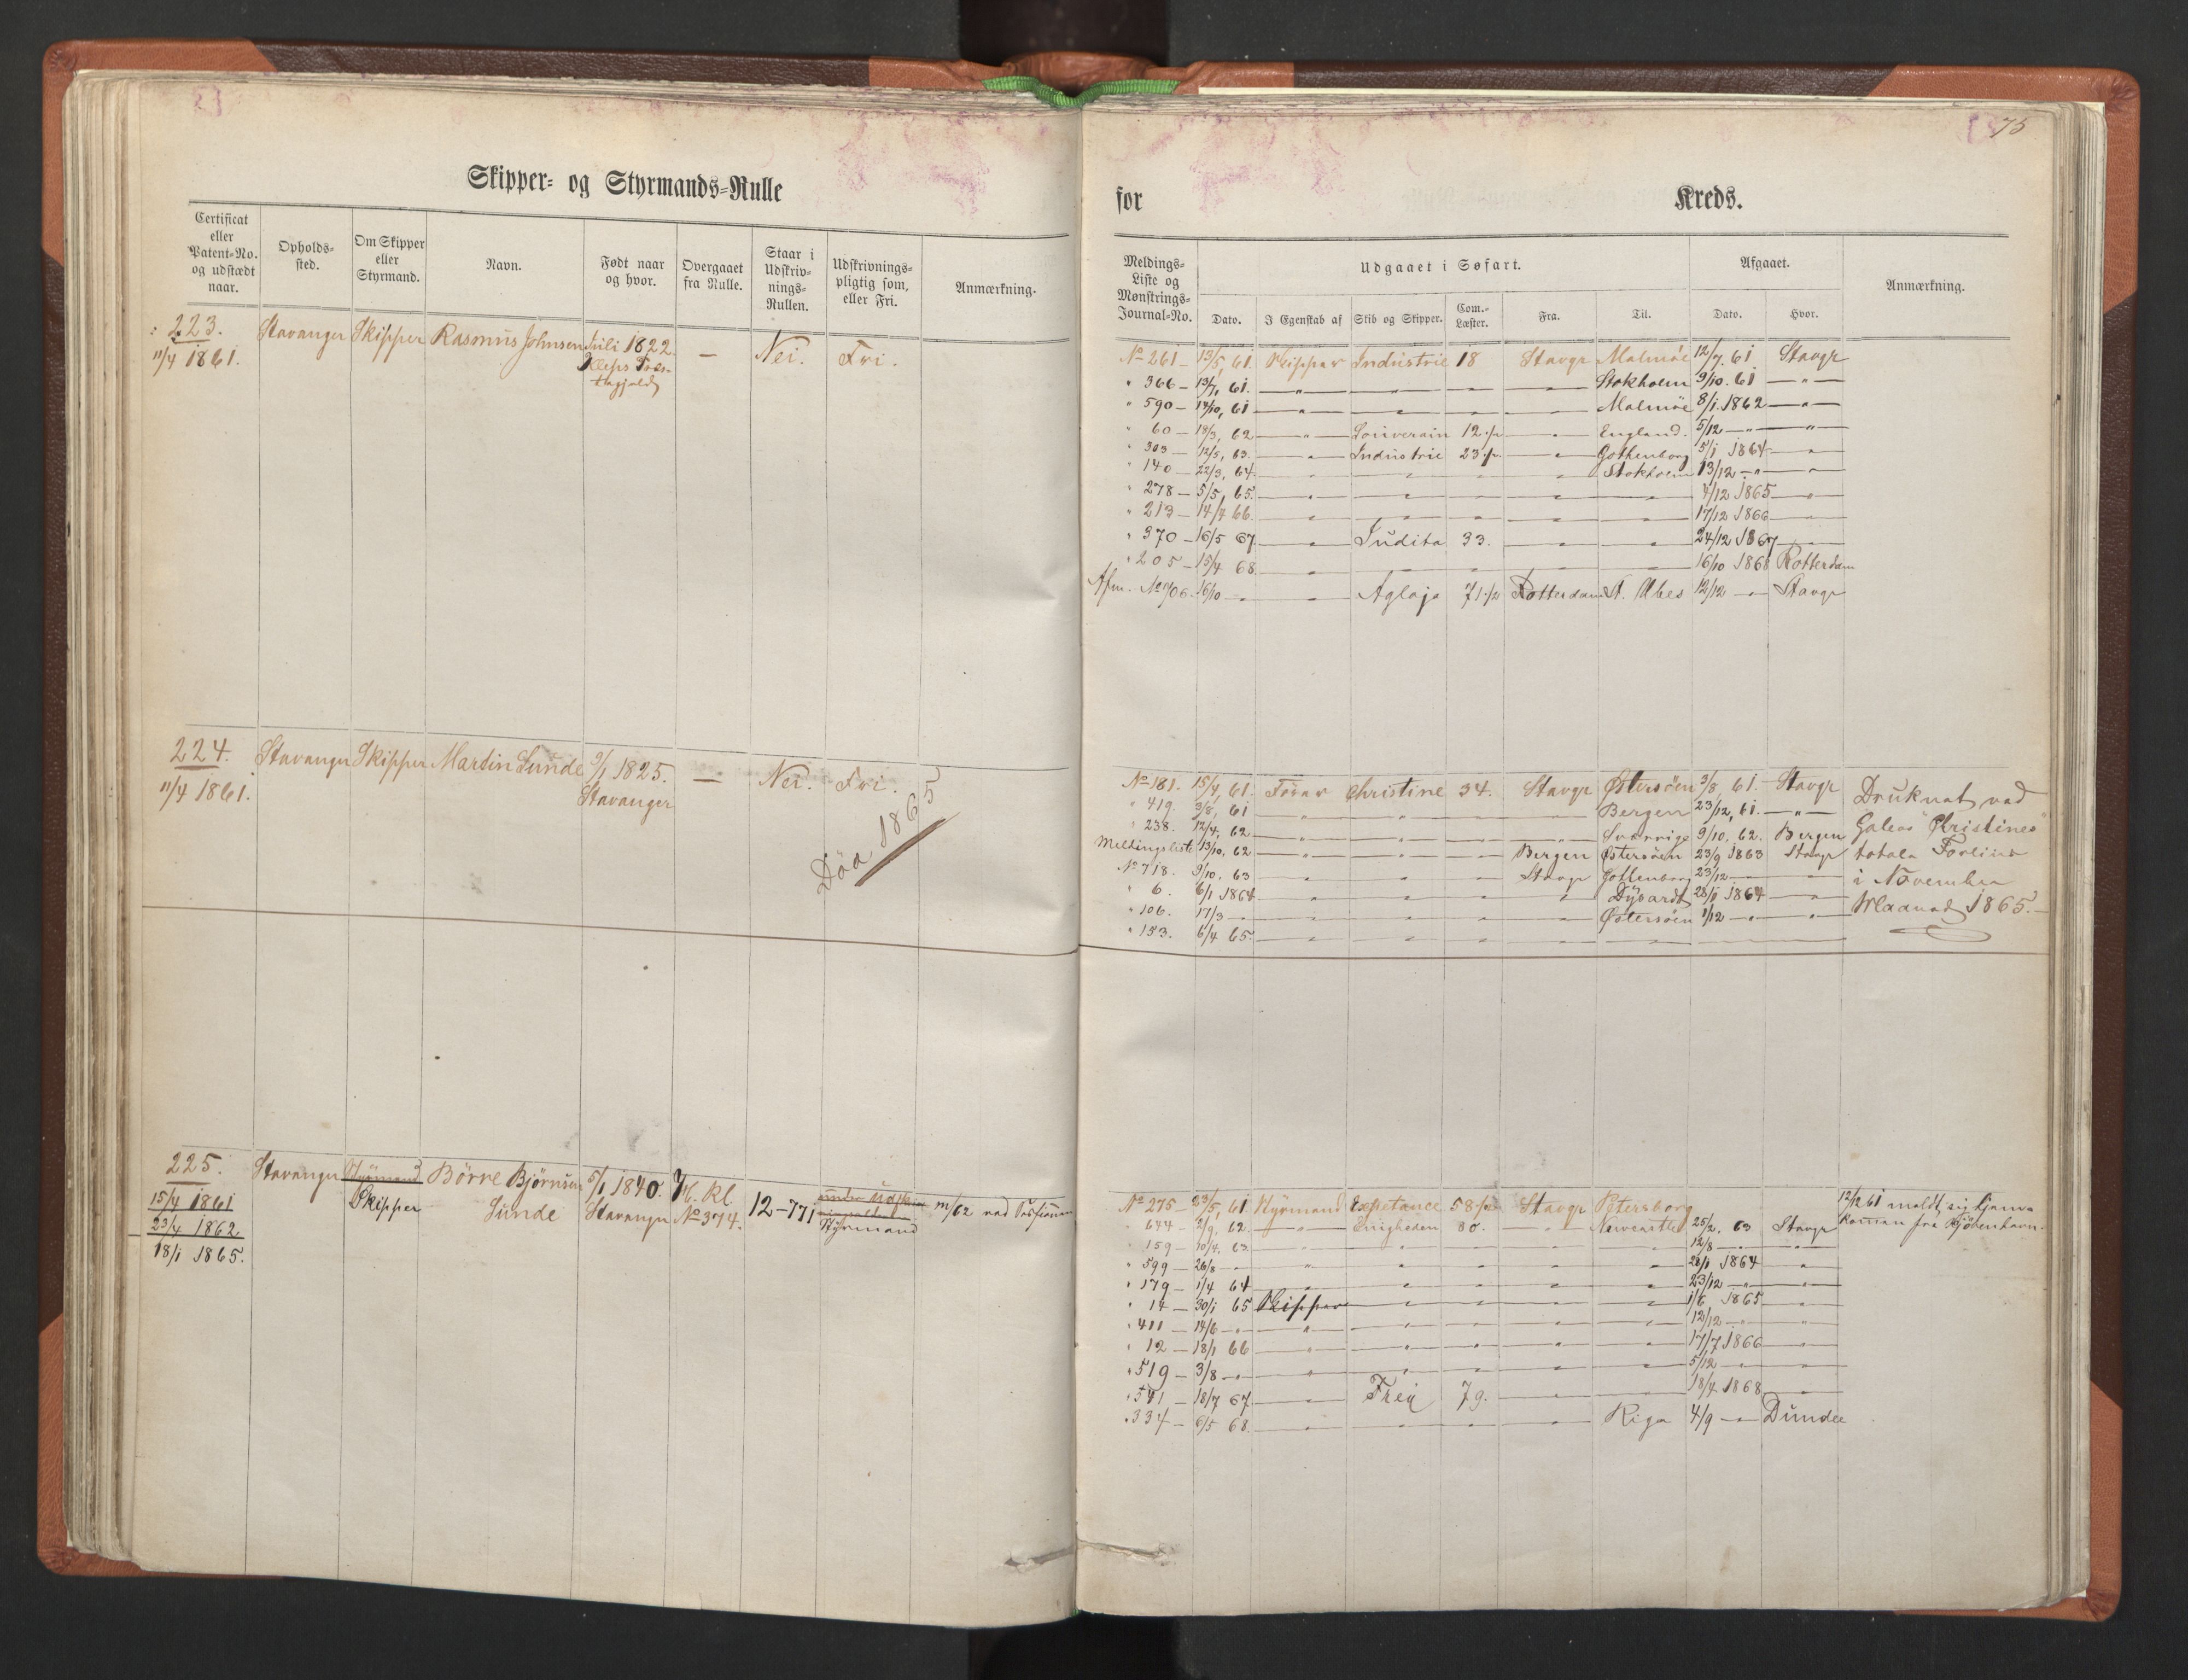 75
Skipper- og Styrmands-Rulle
for Kreds.
Certificat eller Patent-No. og udstædt naar. Opholds-sted. Om Skipper eller Styrmand. Navn. Født naar og hvor. Overgaaet fra Rulle. Staar i Udskriv-nings-Rullen. Udskrivnings-pligtig som, eller Fri. Anmærkning.
Meldings-Liste og Mønstrings-Journal-No. Udgaaet i Søfart. Afgaaet. Anmærkning.
Dato. I Egenskab af Skib og Skipper. Com.-Læster. Fra. Til. Dato. Hvor.
223. Stavanger Skipper Rasmus Johnsen Juli 1822. — Nei. Fri.
11/4 1861. Kleps Præs-
tegjeld
No 261 — 13/5, 61. Skipper Industrie 18 Stavgr Malmöe 12/7. 61 Stavgr
" 366 — 13/7, 61. — " — — — — Stokholm 9/10. 61 — " —
" 590 — 14/10, 61 — " — — — — Malmöe 8/1. 1862 — " —
" 60 — 18/3, 62 — " — Souverain 12 1/2 — England. 5/12 — " — "
" 303 — 12/5, 63. — " — Industrie 23 1/2 — Gothenborg 5/1 1864 — "
" 140 — 22/3, 64. — " — " — " — " — Stokholm 13/12 — " — "
" 278 — 5/5, 65. — " — " — " — " — " — 4/12 1865 — "
" 213 — 14/4 66. — " — " — " — " — " — 17/12 1866 — "
" 370 — 16/5 67. — " — Judita 33. — " — " — 24/12 1867 — "
" 205 — 15/4 68. — " — " — " — " — " — 16/10 1868 Rotterdam
Afm. No 1/06. 16/10 — " — " — Aglaja 71 1/2 Rotterdam St. Ubes 12/12 — " — Stavgr
224. Stavanger Skipper Martin Sunde 9/1 1825. — Nei. Fri.
11/4 1861. Stavanger
Död 1865
No 181. 15/4, 61. Förer Christine 34. Stavgr Østersöen 3/8, 61. Stavgr Druknet ved
" 419. 3/8, 61 — " — " — " — " — Bergen 23/12, 61. — " — Galeas "Christines"
" 238. 12/4, 62 — " — " — " — " — Sverrige 9/10, 62. Bergen totale Forliis
Meldingsliste 13/10, 62 — " — " — " — Bergen Østersöen 23/9 1863 Stavgr i November
No 718. 9/10. 63 — " — " — " — Stavgr Gothenborg 23/12 — " Maaned 1865.
" 6. 6/1 1864 — " — " — " — " — Dysardt 28/1 1864 — "
" 106. 17/3 — " — " — " — " — Østersöen 1/12 — " — "
" 153. 6/4 65. — " — " — " — " — "
225. Stavanger Styrmand Börre Björnsen 5/1 1840. No 374. 12–771
15/4 1861 Skipper Sunde Stavanger Styrmand
23/4 1862
18/1 1865.
No 275 — 23/5, 61 Styrmand Expetance 58 1/2 Stavgr Petersborg 12/12 61 meldt sig hjem-
" 644 — 2/9, 62. — " — Enigheden 80. — " — Newcastle 25/2. 63 Stavgr kommen fra Kjöbenhavn.
" 159 — 10/4, 63 — " — " — " — " — " — 12/8 — " — "
" 599 — 26/8 — " — " — " — " — " — " — 28/1 1864 — "
" 179 — 1/4 64 — " — " — " — " — " — 23/12 — " — "
" 14 — 30/1 65 Skipper — " — " — " — " — 1/6 1865 — "
" 411 — 14/6 — " — " — " — " — " — " — 12/12 — " — "
" 12 — 18/1 66 — " — " — " — " — " — 17/7 1866 — "
" 519 — 3/8 — " — " — " — " — " — " — 5/12 — " — "
" 541 — 18/7 67. — " — Freia 79. — " — " — 18/4 1868 — "
" 334 — 6/5 68. — " — " — " — " — Riga 4/9 — " — Dundee